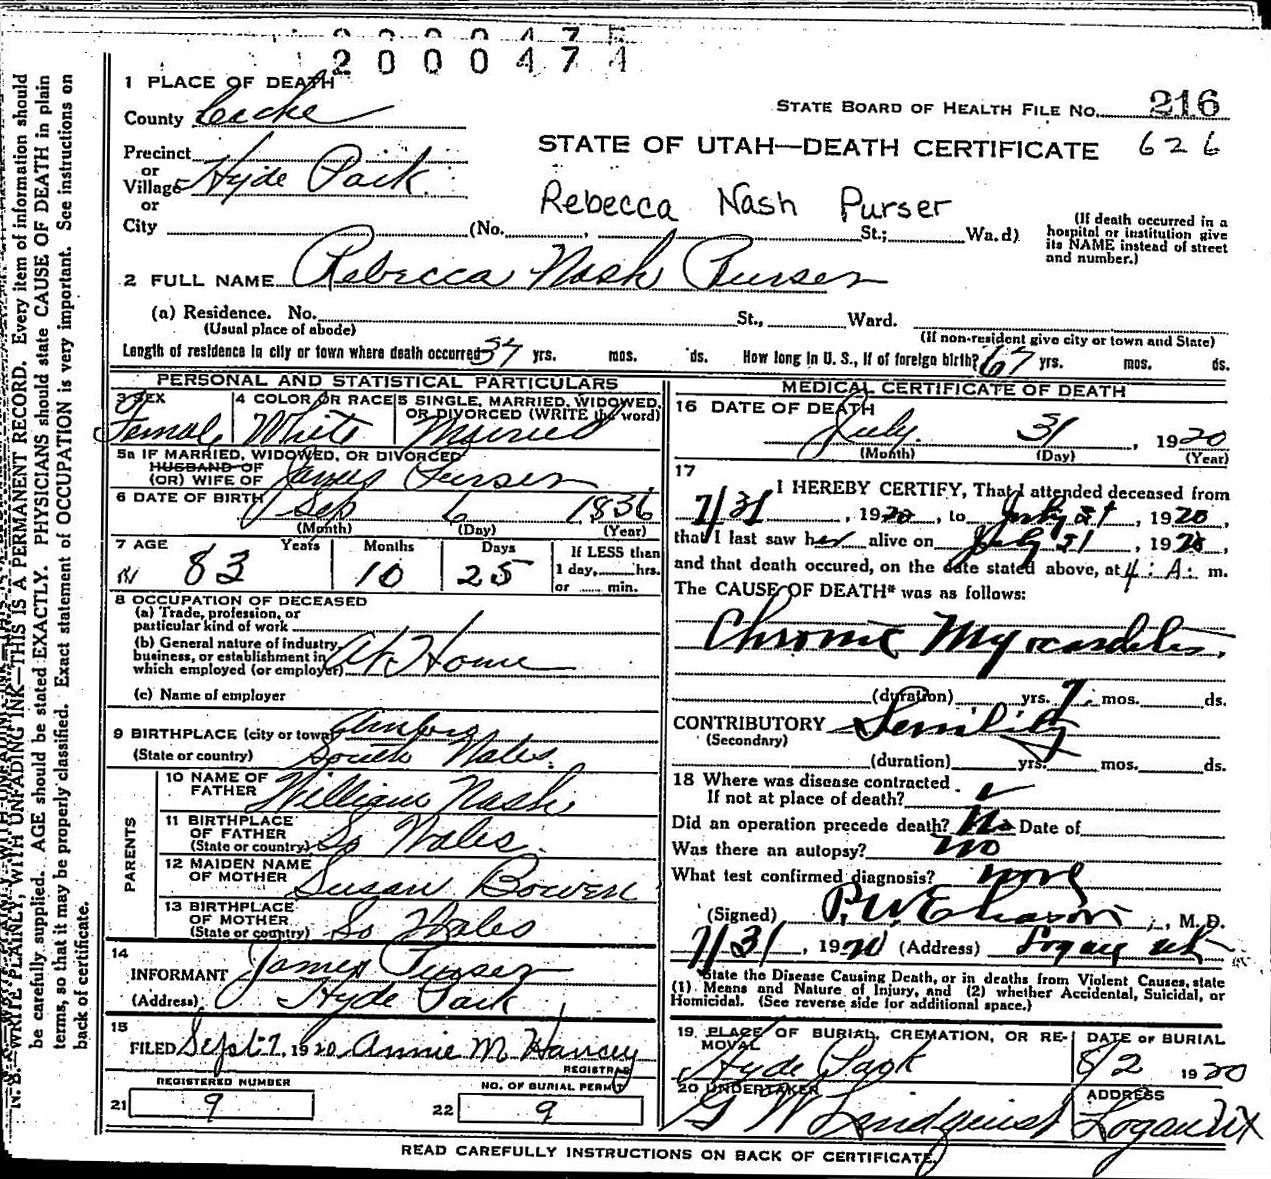 2000474
1 PLACE OF DEATH
STATE BOARD OF HEALTH FILE NO. 216
County Cache
STATE OF UTAH—DEATH CERTIFICATE 626
Precinct
or
Village Hyde Park
or
Rebecca Nash Purser
City (No. , St.; Wa.d)
(If death occurred in a
hospital or institution give
its NAME instead of street
and number.)
2 FULL NAME Rebecca Nash Purser
(a) Residence. No. St., Ward.
(Usual place of abode) (If non-resident give city or town and State)
Length of residence in city or town where death occurred 37 yrs. mos. ds. How long in U. S., if of foreign birth? 67 yrs. mos. ds.
PERSONAL AND STATISTICAL PARTICULARS
3 SEX 4 COLOR OR RACE 5 SINGLE, MARRIED, WIDOWED,
OR DIVORCED (WRITE the word)
Female White Married
5a IF MARRIED, WIDOWED, OR DIVORCED
HUSBAND OF
(OR) WIFE OF James Purser
6 DATE OF BIRTH Sep 6 1836
(Month) (Day) (Year)
7 AGE Years Months Days If LESS than
83 10 25 1 day, hrs.
or min.
8 OCCUPATION OF DECEASED
(a) Trade, profession, or
particular kind of work
(b) General nature of industry,
business, or establishment in
which employed (or employer) At Home
(c) Name of employer
9 BIRTHPLACE (city or town)
(State or country) South Wales.
PARENTS
10 NAME OF
FATHER William Nash
11 BIRTHPLACE
OF FATHER
(State or country) So Wales.
12 MAIDEN NAME
OF MOTHER Susan Bowen
13 BIRTHPLACE
OF MOTHER
(State or country) So Wales
14
INFORMANT James Purser
(Address) Hyde Park
15
FILED Sept 7, 1920 Annie M Harvey
REGISTRAR
REGISTERED NUMBER NO. OF BURIAL PERMIT
21 9 22 9
MEDICAL CERTIFICATE OF DEATH
16 DATE OF DEATH
July 31, 1920
(Month) (Day) (Year)
17
I HEREBY CERTIFY, That I attended deceased from
7/31, 1920, to July 31, 1920,
that I last saw her alive on July 31, 1920,
and that death occured, on the date stated above, at 4:A:m.
The CAUSE OF DEATH* was as follows:
Chronic Myocarditis.
(duration) yrs. 7 mos. ds.
CONTRIBUTORY Senility
(Secondary)
(duration) yrs. mos. ds.
18 Where was disease contracted
If not at place of death?
Did an operation precede death? No Date of
Was there an autopsy? No
What test confirmed diagnosis? none
(Signed) P.W. Eliason, M. D.
7/31, 1920 (Address) Logan Ut
State the Disease Causing Death, or in deaths from Violent Causes, state
(1) Means and Nature of Injury, and (2) whether Accidental, Suicidal, or
Homicidal. (See reverse side for additional space.)
19 PLACE OF BURIAL, CREMATION, OR RE-
MOVAL DATE OF BURIAL
Hyde Park 8/2 1920
20 UNDERTAKER ADDRESS
G W Lindquist Logan Ut
READ CAREFULLY INSTRUCTIONS ON BACK OF CERTIFICATE.
N. B.—WRITE PLAINLY, WITH UNFADING INK—THIS IS A PERMANENT RECORD. Every item of information should
be carefully supplied. AGE should be stated EXACTLY. PHYSICIANS should state CAUSE OF DEATH in plain
terms, so that it may be properly classified. Exact statement of OCCUPATION is very important. See instructions on
back of certificate.